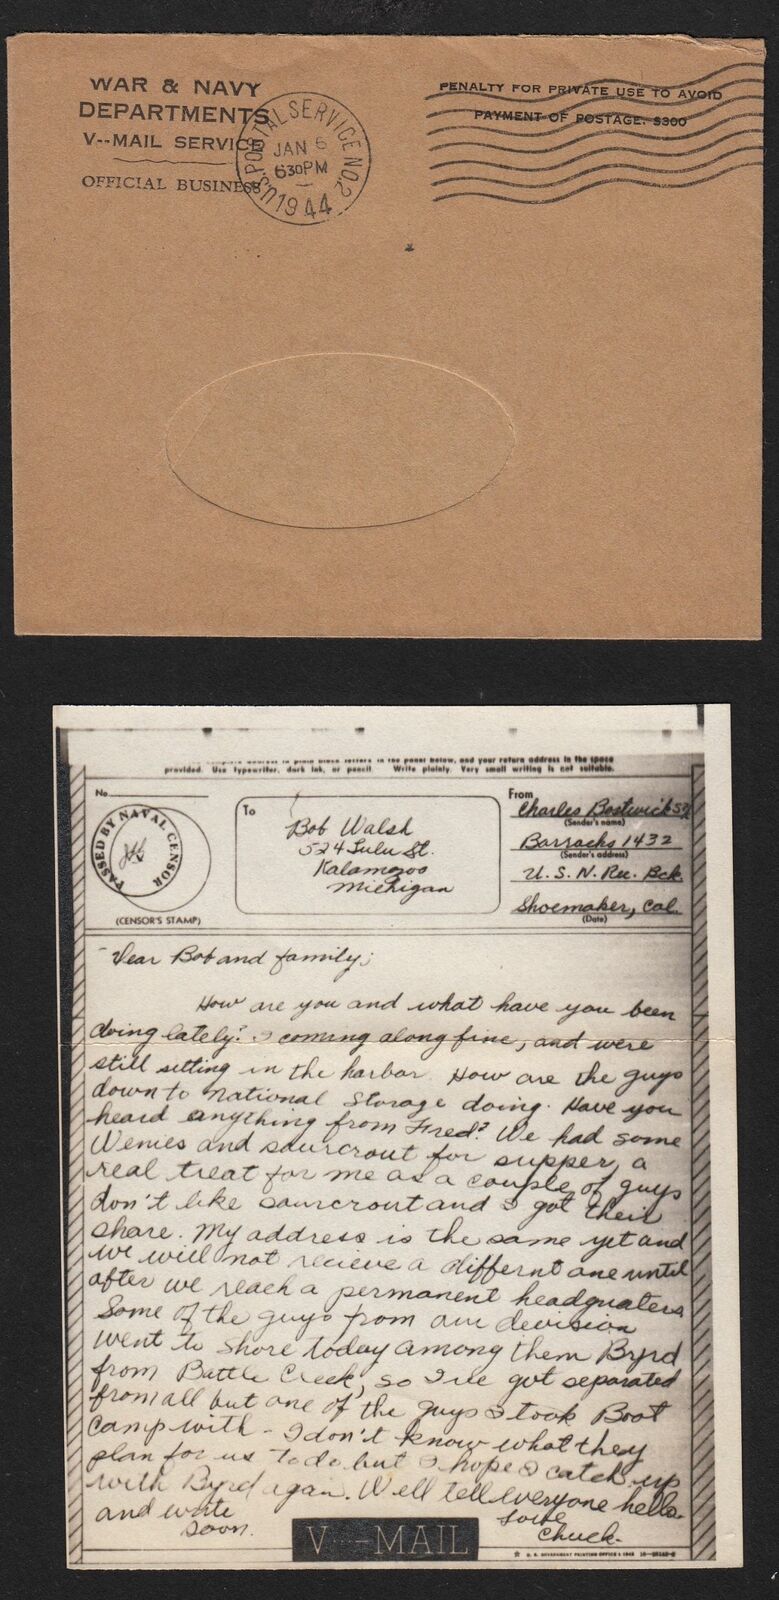 WAR & NAVY
DEPARTMENTS
V--MAIL SERVICE
OFFICIAL BUSINESS
U.S. POSTAL SERVICE NO. 2
JAN 6
630PM
1944
PENALTY FOR PRIVATE USE TO AVOID
PAYMENT OF POSTAGE. $300
complete address in plain block letters in the panel below, and your return address in the space
provided. Use typewriter, dark ink, or pencil. Write plainly. Very small writing is not suitable.
No.
PASSED BY NAVAL CENSOR
(CENSOR'S STAMP)
To
Bob Walsh
524 Lulu St.
Kalamozoo
Michigan
From
Charles Bostwick
(Sender's name)
Barracks 1432
(Sender's address)
U. S. N. Rec. Bck.
Shoemaker, Cal.
(Date)
Dear Bob and family;
How are you and what have you been
doing lately? I coming along fine, and were
still sitting in the harbor. How are the guys
down to National Storage doing. Have you
heard anything from Fred? We had some
Wenies and saurcrout for supper, a
real treat for me as a couple of guys
don't like saurcrout and I got their
share. My address is the same yet and
we will not recieve a differnt one until
after we reach a permanent headquaters
Some of the guys from our devision
went to shore today among them Byrd
from Battle Creek, so I've got separated
from all but one of the guys I took Boot
camp with - I don't know what they
plan for us to do but I hope I catch up
with Byrd again. Well tell everyone hello.
and write
soon.
Love
Chuck.
V---MAIL
☆ U. S. GOVERNMENT PRINTING OFFICE : 1943